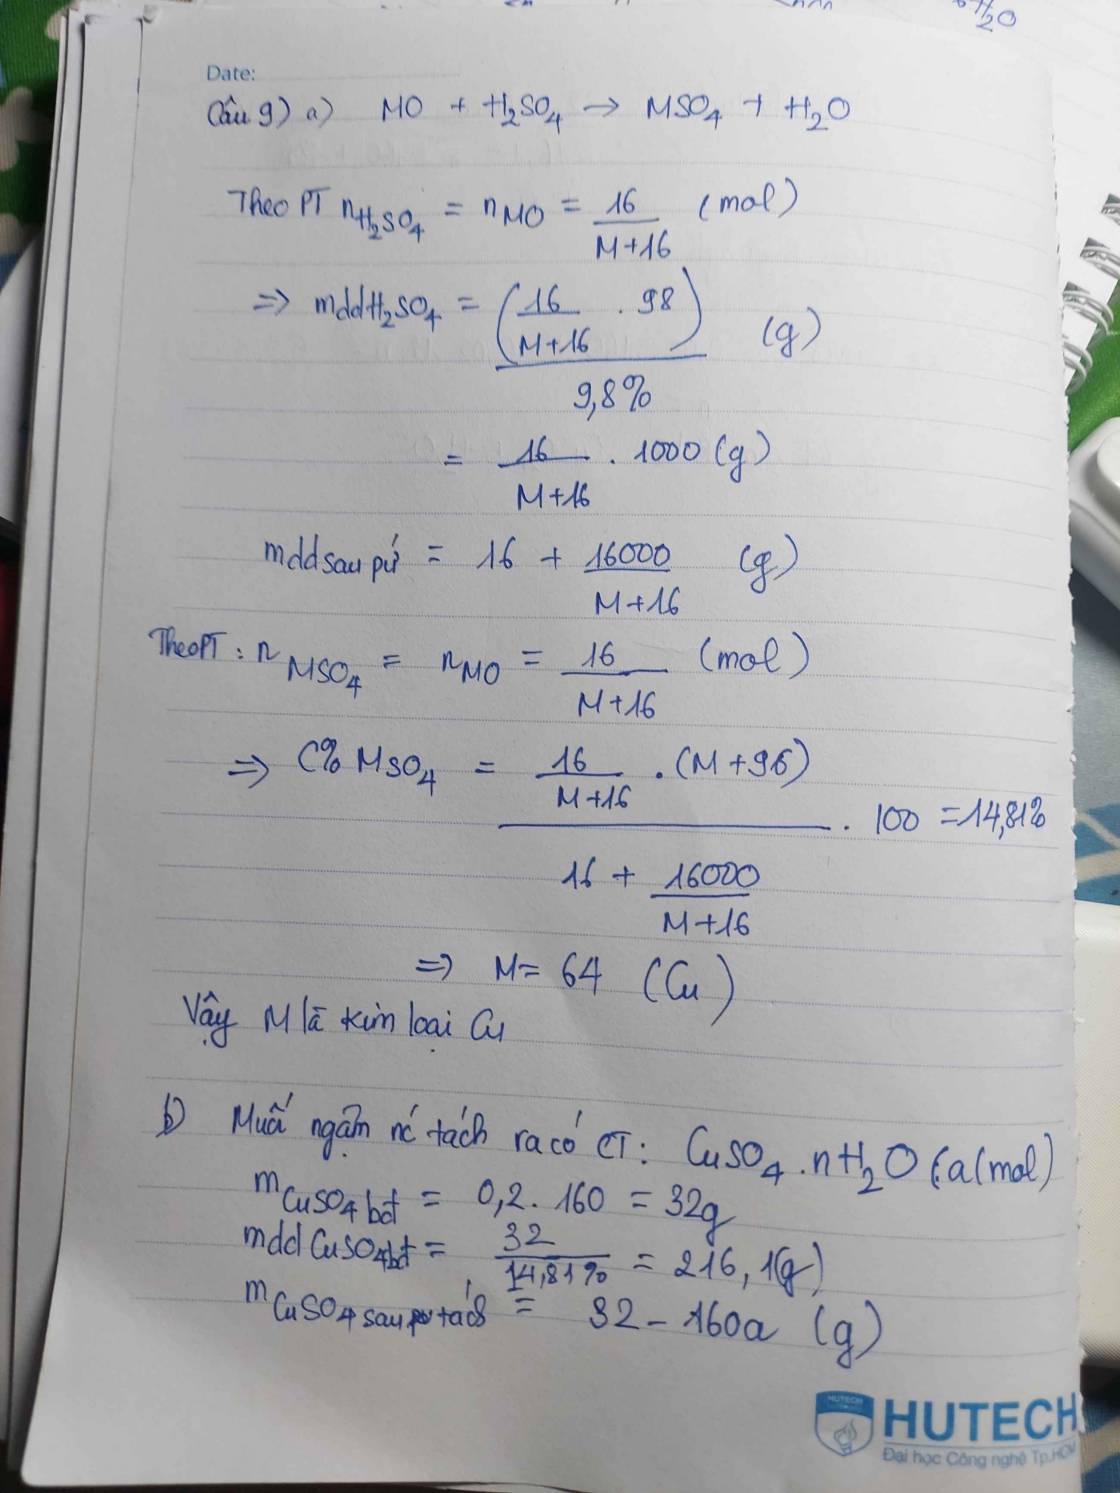 H₂O
Date:
Câu 9) a) MO + H₂SO₄ → MSO₄ + H₂O
Theo PT nH₂SO₄ = nMO = 16/(M+16) (mol)
=> mddH₂SO₄ = (16/(M+16) . 98)/9,8% (g)
= 16/(M+16) . 1000 (g)
mdd sau pứ = 16 + 16000/(M+16) (g)
Theo PT: nMSO₄ = nMO = 16/(M+16) (mol)
=> C% MSO₄ = (16/(M+16) . (M+96))/(16 + 16000/(M+16)) . 100 = 14,81%
=> M = 64 (Cu)
Vậy M là kim loại Cu
b) Muối ngậm nc tách ra có CT: CuSO₄.nH₂O: a(mol)
mCuSO₄ bđ = 0,2 . 160 = 32g
mdd CuSO₄ bđ = 32/14,81% = 216,1(g)
mCuSO₄ sau tách = 32 - 160a (g)
HUTECH
HUTECH
Đại học Công nghệ Tp.HCM